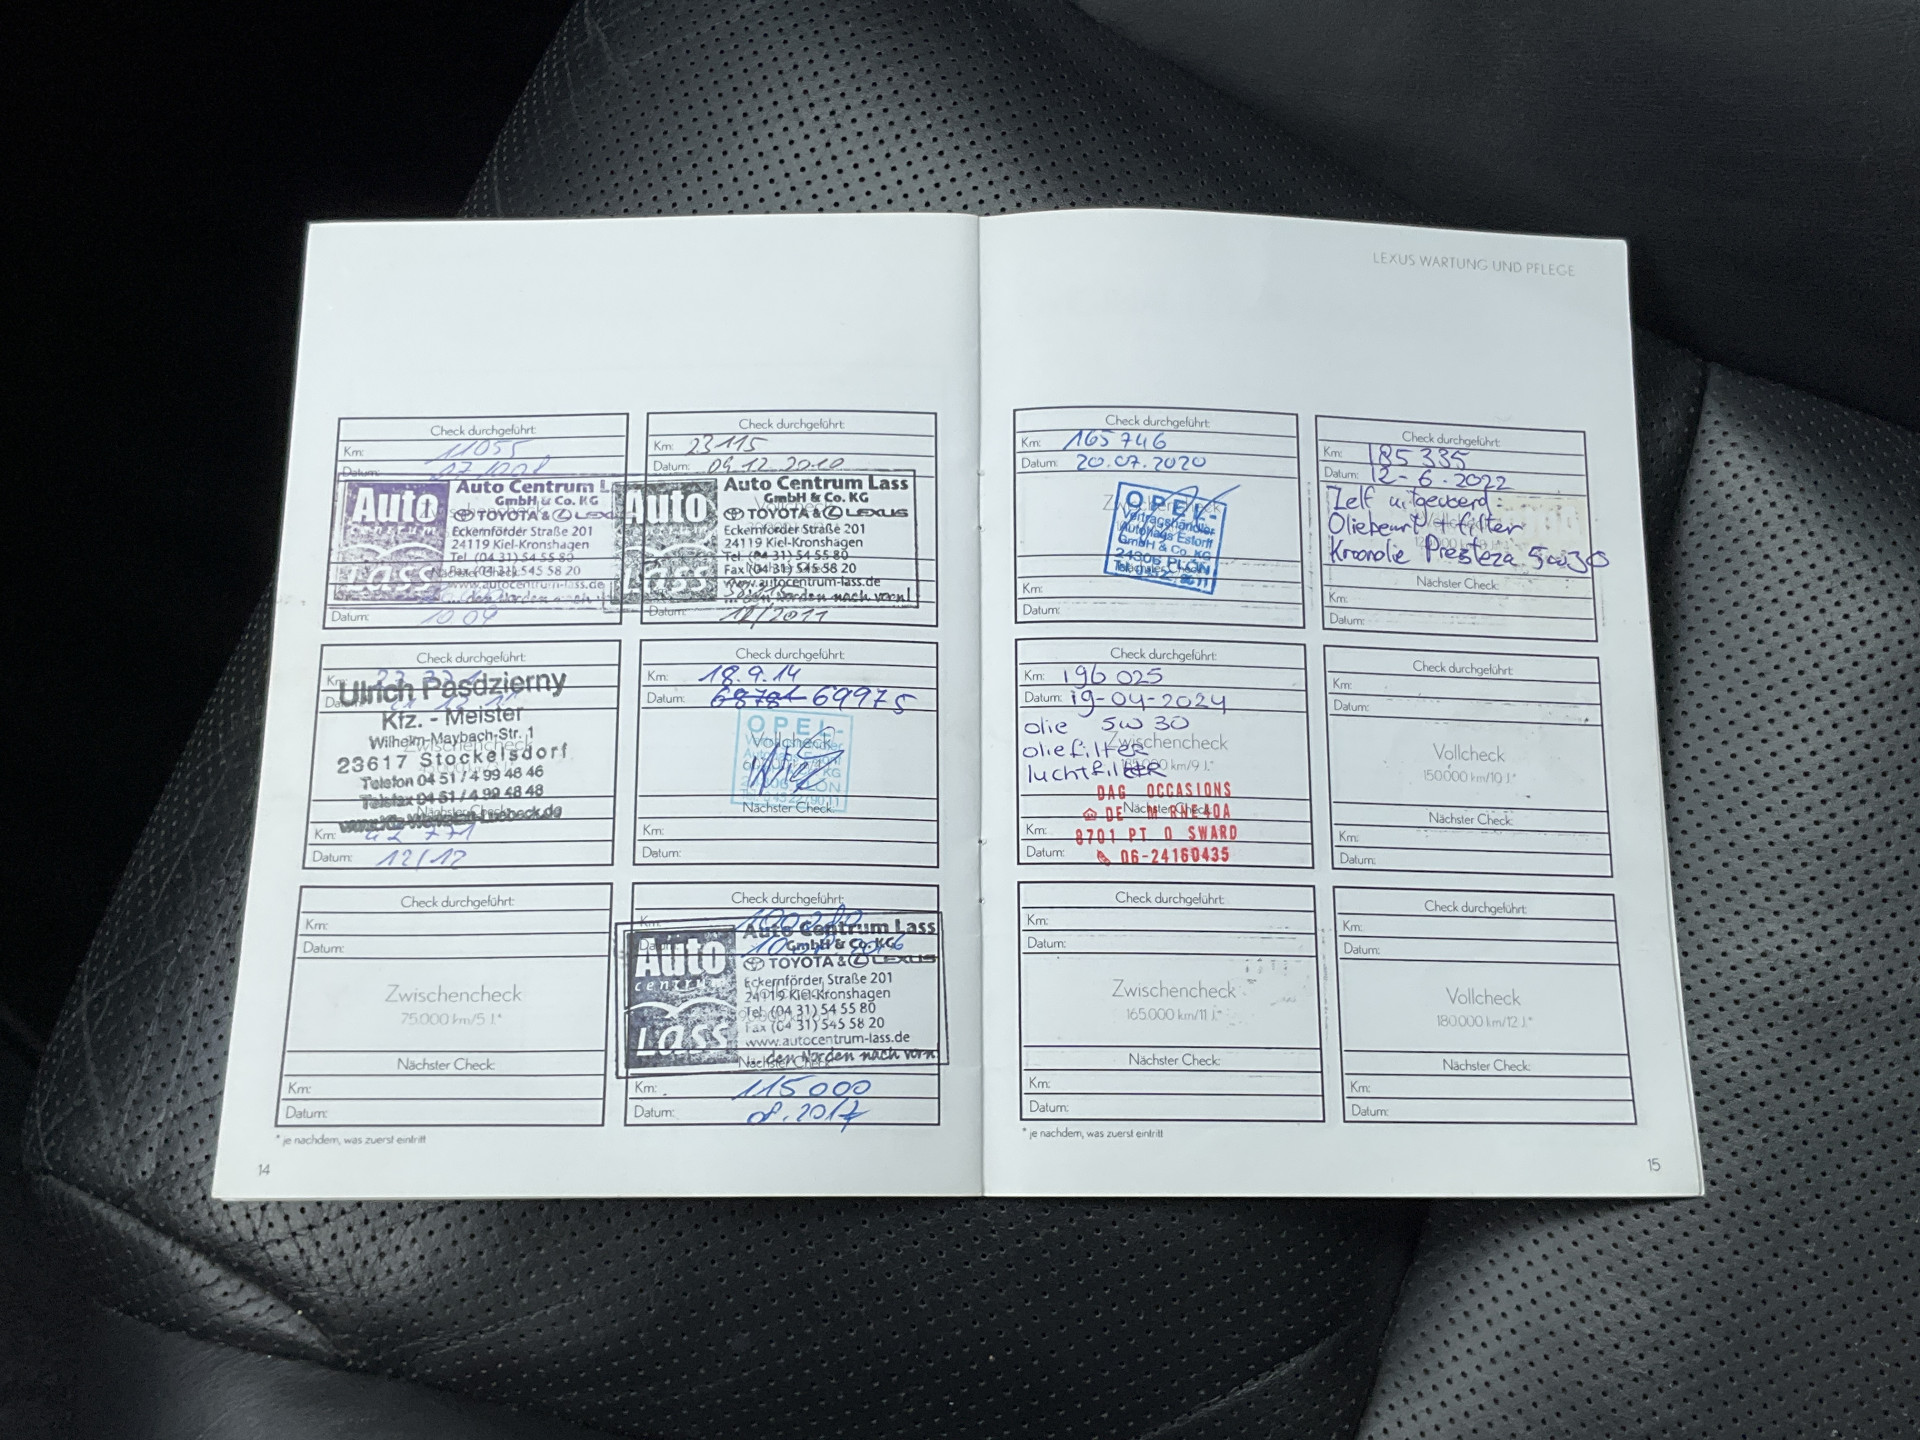 LEXUS WARTUNG UND PFLEGE
Check durchgeführt:
Km: 11055
Datum:
Auto
Lass
Auto Centrum L
GmbH & Co. KG
TOYOTA & LEXUS
Eckernförder Straße 201
24119 Kiel-Kronshagen
Tel. (04 31) 54 55 80
Fax (04 31) 545 58 20
www.autocentrum-lass.de
Datum: 10.09
Check durchgeführt:
Km: 23115
Datum: 09.12.2010
Auto
Lass
Auto Centrum Lass
GmbH & Co. KG
TOYOTA & LEXUS
Eckernförder Straße 201
24119 Kiel-Kronshagen
Tel (04 31) 54 55 80
Fax (04 31) 545 58 20
www.autocentrum-lass.de
... den Norden nach vorn!
Datum: 12/2011
Check durchgeführt:
Km:
Ulrich Pasdzierny
Kfz. - Meister
Wilhelm-Maybach-Str. 1
Zwischencheck
23617 Stockelsdorf
Telefon 04 51 / 4 99 48 46
Telefax 04 51 / 4 99 48 48
Nächster Check:
Km:
Datum: 12/12
Check durchgeführt:
Km: 18.9.14
Datum: 69975
OPEL-
Vollcheck
Nächster Check:
Km:
Datum:
Check durchgeführt:
Km:
Datum:
Zwischencheck
75.000 km/5 J.*
Nächster Check:
Km:
Datum:
Check durchgeführt:
Km:
Auto
centrum
Lass
Auto Centrum Lass
GmbH & Co. KG
TOYOTA & LEXUS
Eckernförder Straße 201
24119 Kiel-Kronshagen
Tel. (04 31) 54 55 80
Fax (04 31) 545 58 20
www.autocentrum-lass.de
... den Norden nach vorn
Nächster Check:
Km: 115000
Datum: 08.2017
* je nachdem, was zuerst eintritt
14
Check durchgeführt:
Km: 165746
Datum: 20.07.2020
OPEL-
Vertragshändler
Autohaus Estorff
GmbH & Co. KG
24306 PLÖN
Km:
Datum:
Check durchgeführt:
Km: 185335
Datum: 12-6-2022
Zelf uitgevoerd:
Oliebeurt + filter
Kroonolie Presteza 5w30
Nächster Check:
Km:
Datum:
Check durchgeführt:
Km: 196025
Datum: 19-04-2024
olie 5w30
Zwischencheck
oliefilter
luchtfilter
DAG OCCASIONS
Nächster Check:
Km:
8701 PT
Datum: 06-24160435
Check durchgeführt:
Km:
Datum:
Vollcheck
150.000 km/10 J.*
Nächster Check:
Km:
Datum:
Check durchgeführt:
Km:
Datum:
Zwischencheck
165.000 km/11 J.*
Nächster Check:
Km:
Datum:
Check durchgeführt:
Km:
Datum:
Vollcheck
180.000 km/12 J.*
Nächster Check:
Km:
Datum:
* je nachdem, was zuerst eintritt
15